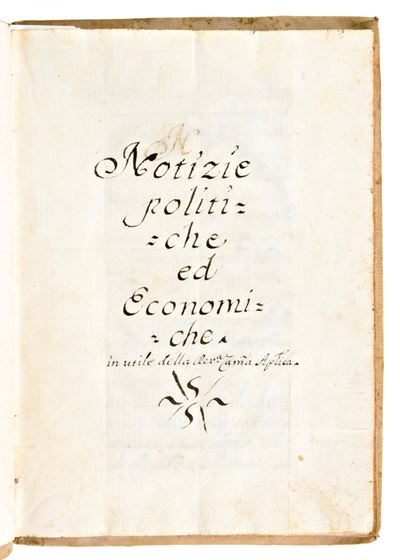 Notizie
politi=
=che
ed
Economi=
=che.
in utile della Rev.ᵃ Cam̃a Aplica.